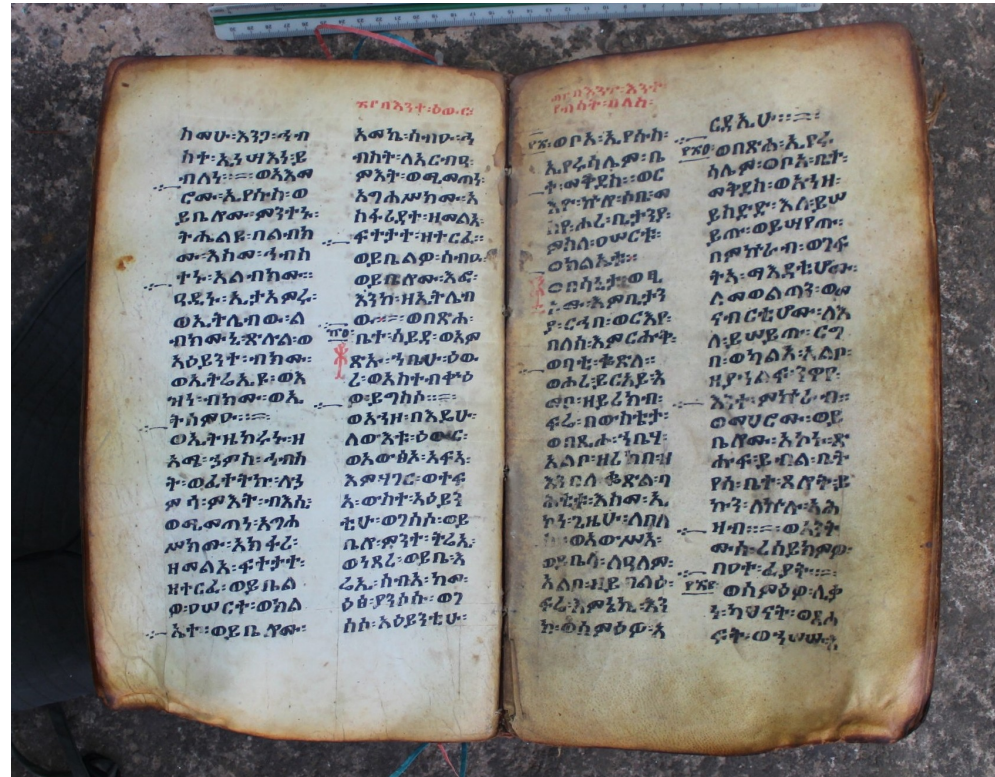 በእንተ፡ዕውር፡
ከመሁ፡እንጋ፡ኅብ
ስተ፡ኢንሣእነ፡ይ
ብለነ፡፡ ወአእመ
ሮሙ፡ኢየሱስ፡ወ
ይቤሎሙ፡ምንተኑ፡
ትሔልዩ፡በልብክ
ሙ፡እስመ፡ኅብስ
ተኑ፡አልብክሙ፡፡
ዓዲኑ፡ኢታአምሩ፡
ወኢትሌብው፡ል
ብክሙኒ፡ጽሉል፡ወ
አዕይንት፡ብክሙ፡
ወኢትሬእዩ፡ወእ
ዝን፡ብክሙ፡ወኢ
ትሰምዑ፡፡
ወኢትዜከሩኑ፡ዘ
አሜ፡ኀምስ፡ኅብስ
ት፡ወፈተትኩ፡
ምእት፡ብእሲ፡
ወሚመጠነ፡አግሐ
ሥክሙ፡አክፋረ፡
ዘመልአ፡ፍተታተ፡
ዘተርፈ፡ወይቤል
ዎ፡ዐሠርተ፡ወክል
ኤተ፡፡ወይቤሎሙ፡
አመኬ፡ሰብዑ፡ኅ
ብስት፡ለአርብዓ፡
ምእት፡ወሚመጠነ፡
አግሐሥክሙ፡አ
ክፋሪተ፡ዘመልአ፡
ፍተታተ፡ዘተርፈ፡፡
ወይቤልዎ፡ሰብዑ፡
ወይቤሎሙ፡እፎ፡
እንከ፡ዘኢትሌብ
ው፡፡ወበጽሐ፡
ቤተ፡ሳይዳ፡ወአም
ጽኡ፡ኀቤሁ፡ዕው
ረ፡ወአስተብቍዕ
ዎ፡ይግስሶ፡፡
ወአኀዘ፡በእዴሁ፡
ለውእቱ፡ዕውር፡
ወአውፅአ፡አፍአ፡
እምሃገር፡ወተፍ
አ፡ውስተ፡አዕይን
ቲሁ፡ወገሰሶ፡ወይ
ቤሎ፡ምንተ፡ትሬኢ፡
ወነጸረ፡ወይቤ፡እ
ሬኢ፡ሰብአ፡ከመ፡
ዕፅ፡ያንሶሱ፡ወገ
ሰሶ፡አዕይንቲሁ፡
በእንተ፡እንተ፡
በለስ፡
ወቦአ፡ኢየሱስ፡
ኢየሩሳሌም፡ቤ
ተ፡መቅደስ፡ወር
እዮ፡ኵሎ፡ሶበ፡መ
ስየ፡ሐረ፡ቢታንያ፡
ምስለ፡ዐሠርቱ፡
ወክልኤቱ፡፡
ወበሳኒታ፡ወፂ
ኦሙ፡እምቢታን
ያ፡ርኅበ፡ወርእየ፡
በለሰ፡እምርሑቅ፡
ወባቲ፡ቈጽለ፡
ወሐረ፡ይርአይ፡እ
መቦ፡ዘይረክብ፡
ፍሬ፡በውስቴታ፡
ወበጺሖ፡ኀቤሃ፡
አልቦ፡ዘረከበ፡ዘ
እንበለ፡ቈጽል፡ባ
ሕቲቱ፡እስመ፡ኢ
ኮነ፡ጊዜሁ፡ለበለ
ስ፡ወአውሥአ፡
ወይቤላ፡ለዓለም፡
አልቦ፡ዘይበልዕ፡
ፍሬ፡እምኔኪ፡እን
ከ፡ወሰምዕዎ፡አ
ርዳኢሁ፡፡
ወበጽሐ፡ኢየሩ
ሳሌም፡ወቦአ፡ቤተ፡
መቅደስ፡ወአኀዘ፡
ይስድድ፡እለ፡ይሠ
ይጡ፡ወይሣየጡ፡
በምኵራብ፡ወገፍ
ትአ፡ማእዳቲሆሙ፡
ለመወልጣን፡ወመ
ናብርቲሆሙ፡ለእ
ለ፡ይሠይጡ፡ርግ
በ፡ወከልአ፡አልቦ፡
ዘያኀልፍ፡ንዋየ፡
እንተ፡ምኵራብ፡፡
ወመሀሮሙ፡ወይ
ቤሎሙ፡አኮኑ፡ጽ
ሑፍ፡ይብል፡ቤት
የሰ፡ቤተ፡ጸሎት፡ይ
ኩን፡ለኵሉ፡አሕ
ዛብ፡፡ ወአንት
ሙሰ፡ረሰይክምዎ፡
በዐተ፡ፈያት፡፡
ወሰምዕዎ፡ሊቃ
ነ፡ካህናት፡ወጸሐ